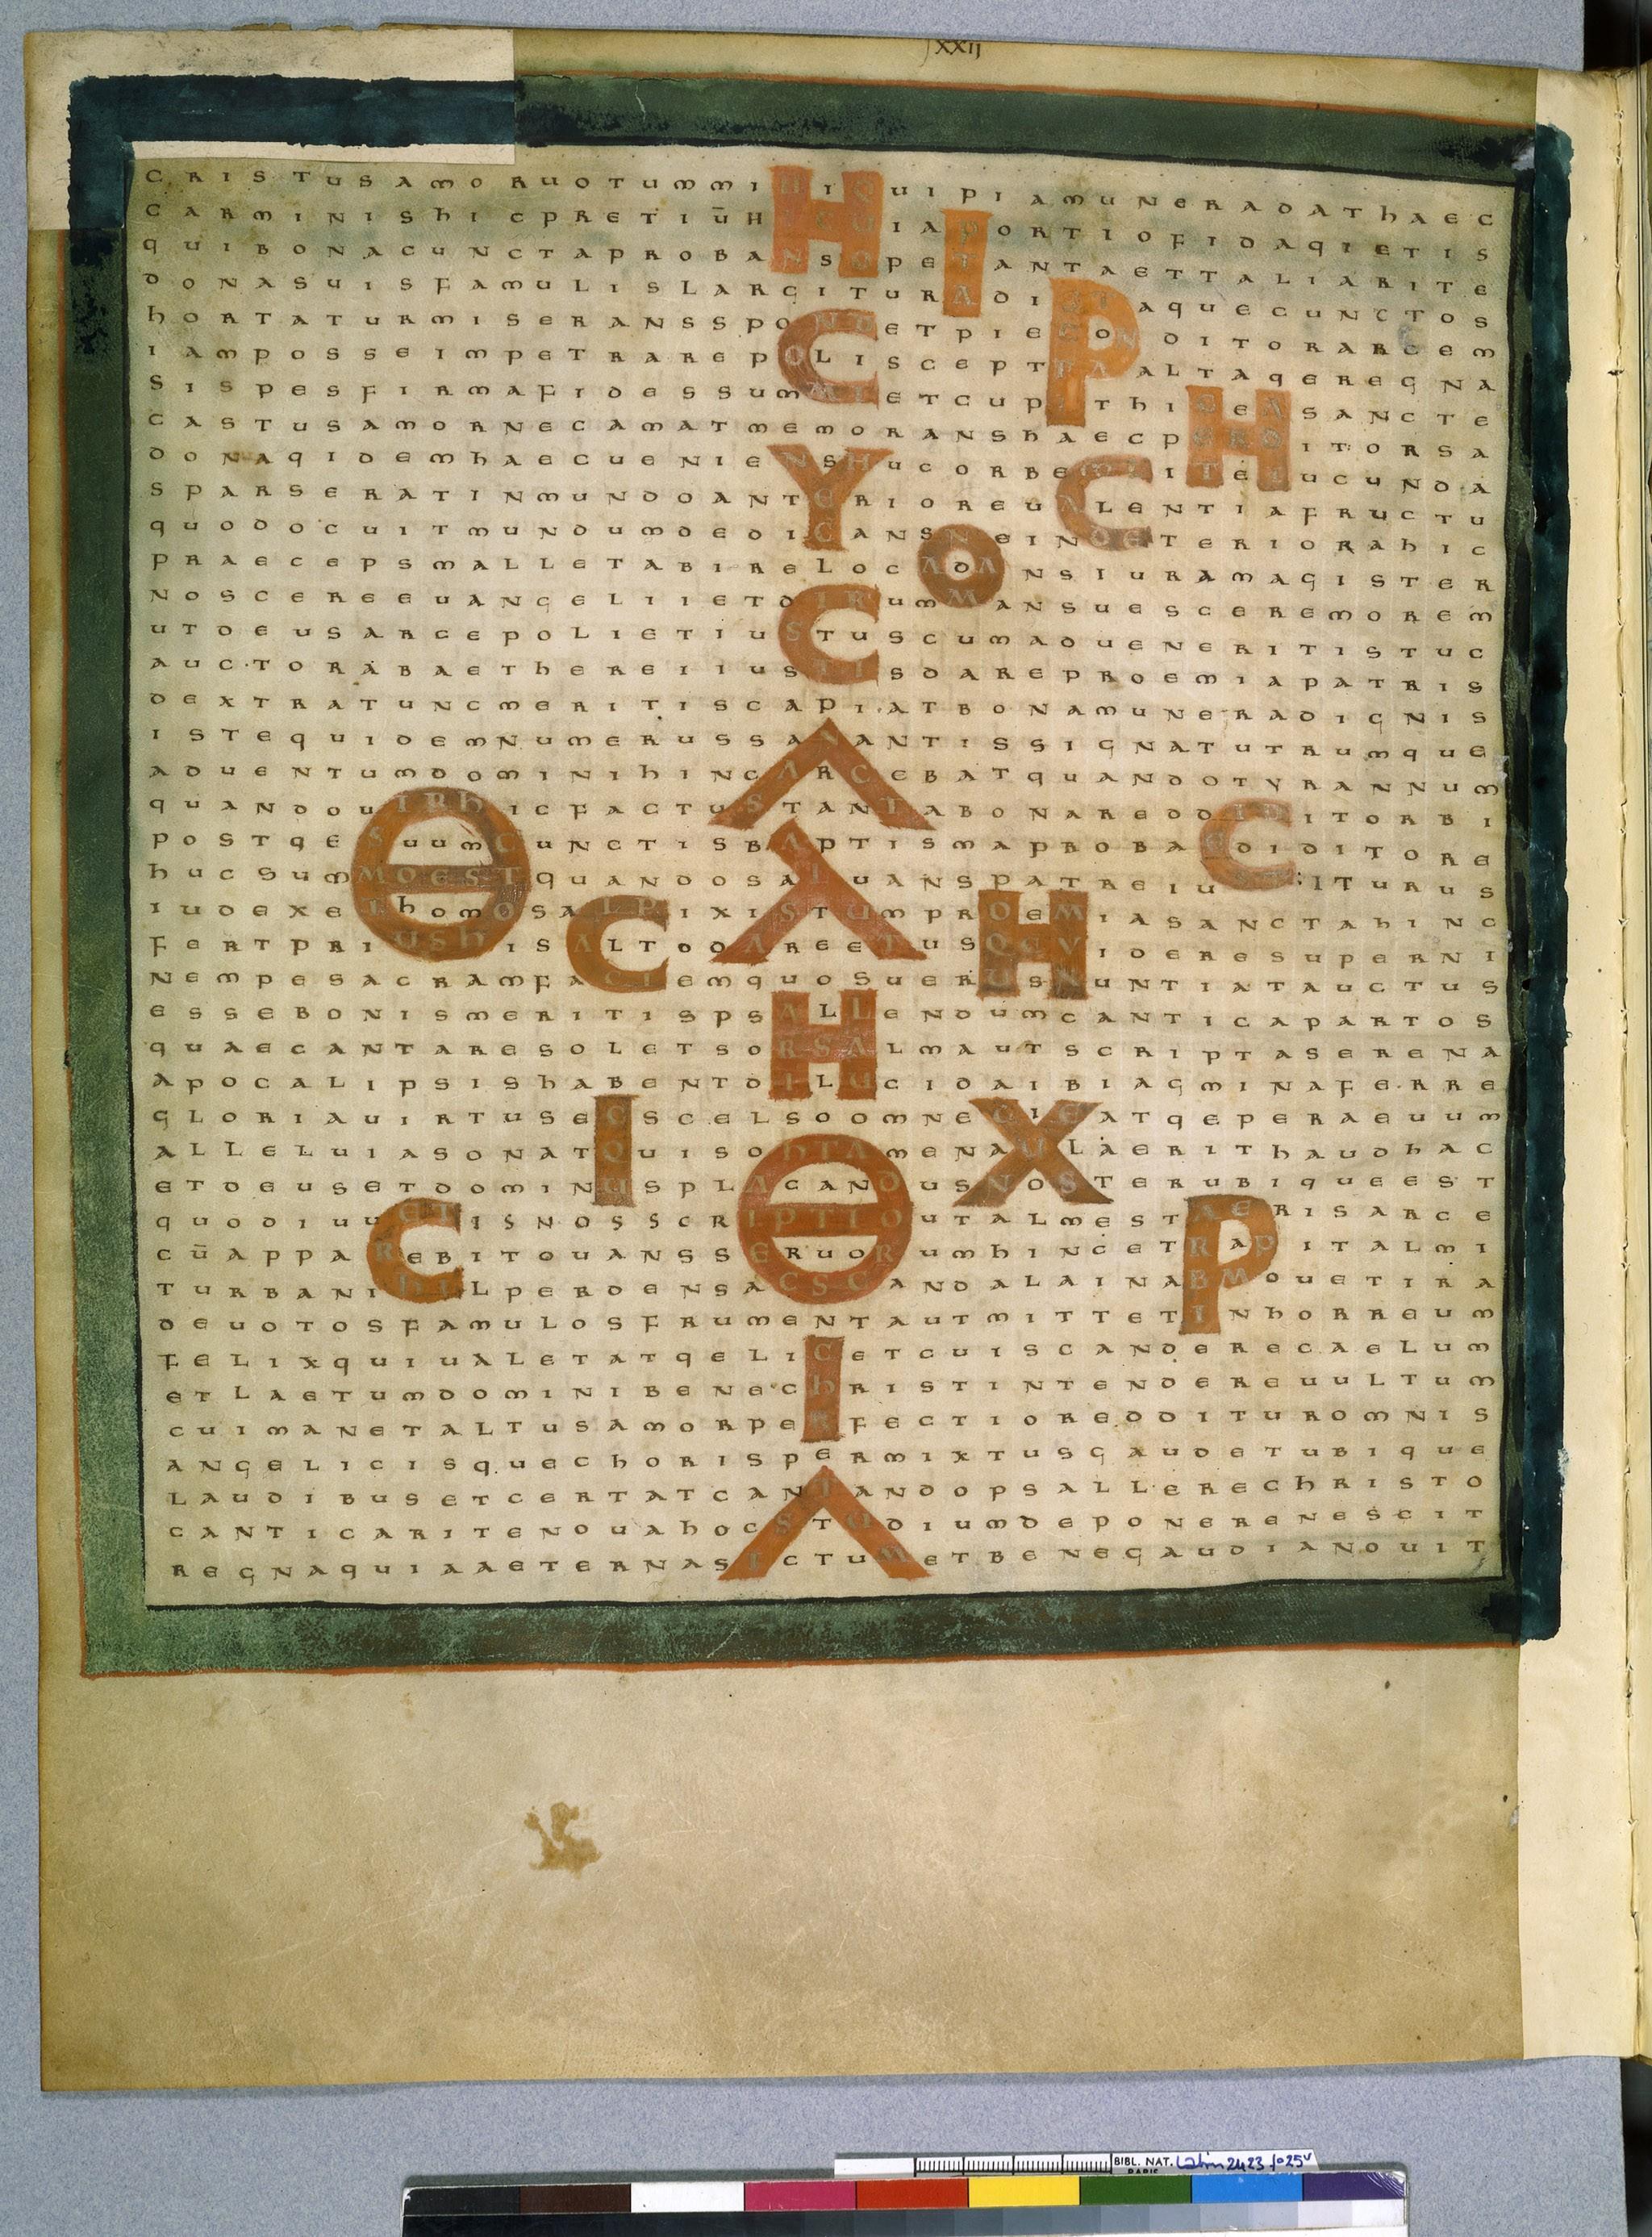 XXII
CRISTUSAMORUOTUMMIHIQUIPIAMUNERADATHAEC
CARMINISHICPRETIŪHICUIAPORTIOFIDAQIETIS
QUIBONACUNCTAPROBANSOPETANTAETTALIARITE
DONASUISFAMULISLARGITURADIQTAQUECUNCTOS
HORTATURMISERANSSPONTETPIECONDITORARCEM
IAMPOSSEIMPETRAREPOLISCEPTRAALTAQEREGNA
SISPESFIRMAFIDESSUMMIETCUPITHICEASANCTE
CASTUSAMORNECAMATMEMORANSHAECPERDITORSA
DONAQIDEMHAECUENIENSHUCORBEMITEIUCUNDA
SPARSERATINMUNDOANTERIOREUALENTIAFRUCTU
QUODOCUITMUNDUMDEDICANSNEINDETERIORAHIC
PRAECEPSMALLETABIRELOCADANSIURAMAGISTER
NOSCEREEUANGELIIETDIRUMMANSUESCEREMOREM
UTDEUSARCEPOLIETIUSTUSCUMADUENERITISTUC
AUCTORABAETHEREIIUSTISDAREPROEMIAPATRIS
DEXTRATUNCMERITISCAPIATBONAMUNERADIGNIS
ISTEQUIDEMNUMERUSSANANTISSIGNATUTRUMQUE
ADUENTUMDOMINIHINCARCEBATQUANDOTYRANNUM
QUANDOUIRHICFACTUSTANTABONAREDDIDITORBI
POSTQESUUMCUNCTISBAPTISMAPROBAEDIDITORE
HUCSUMMOESTQUANDOSALUANSPATREIUSSITURUS
IUDEXETHOMOSALPIXISTUMPROEMIASANCTAHINC
FERTPRIUSHISALTOOAREETUSQEVIDERESUPERNI
NEMPESACRAMFACIEMQUOSUERUSNUNTIATAUCTUS
ESSEBONISMERITISPSALLENDUMCANTICAPARTOS
QUAECANTARESOLETSORSALMAUTSCRIPTASERENA
APOCALIPSISHABENTDILUCIDAIBIAGMINAFERRE
GLORIAUIRTUSECSCELSOOMNEGIEATQEPERAEUUM
ALLELUIASONATQUISOHTAMENAULAERITHAUDHAC
ETDEUSETDOMINUSPLACANDUSNOSTERUBIQUEEST
QUODIUUETISNOSSCRIPTIOUTALMESTAERISARCE
CŪAPPAREBITOUANSSERUORUMHINCETRAPITALMI
TURBANIHILPERDENSACSCANDALAINABMOUETIRA
DEUOTOSFAMULOSFRUMENTAUTMITTETINHORREUM
FELIXQUIUALETATQELICETCUISCANDERECAELUM
ETLAETUMDOMINIBENECHRISTINTENDEREUULTUM
CUIMANETALTUSAMORPERFECTIOREDDITUROMNIS
ANGELICISQUECHORISPERMIXTUSGAUDETUBIQUE
LAUDIBUSETCERTATCANTANDOPSALLERECHRISTO
CANTICARITENOUAHOCSTODIUMDEPONERENESCIT
REGNAQUIAAETERNASICTUMETBENEGAUDIANOUIT
BIBL. NAT. Latin 2423 fo 25v
PARIS